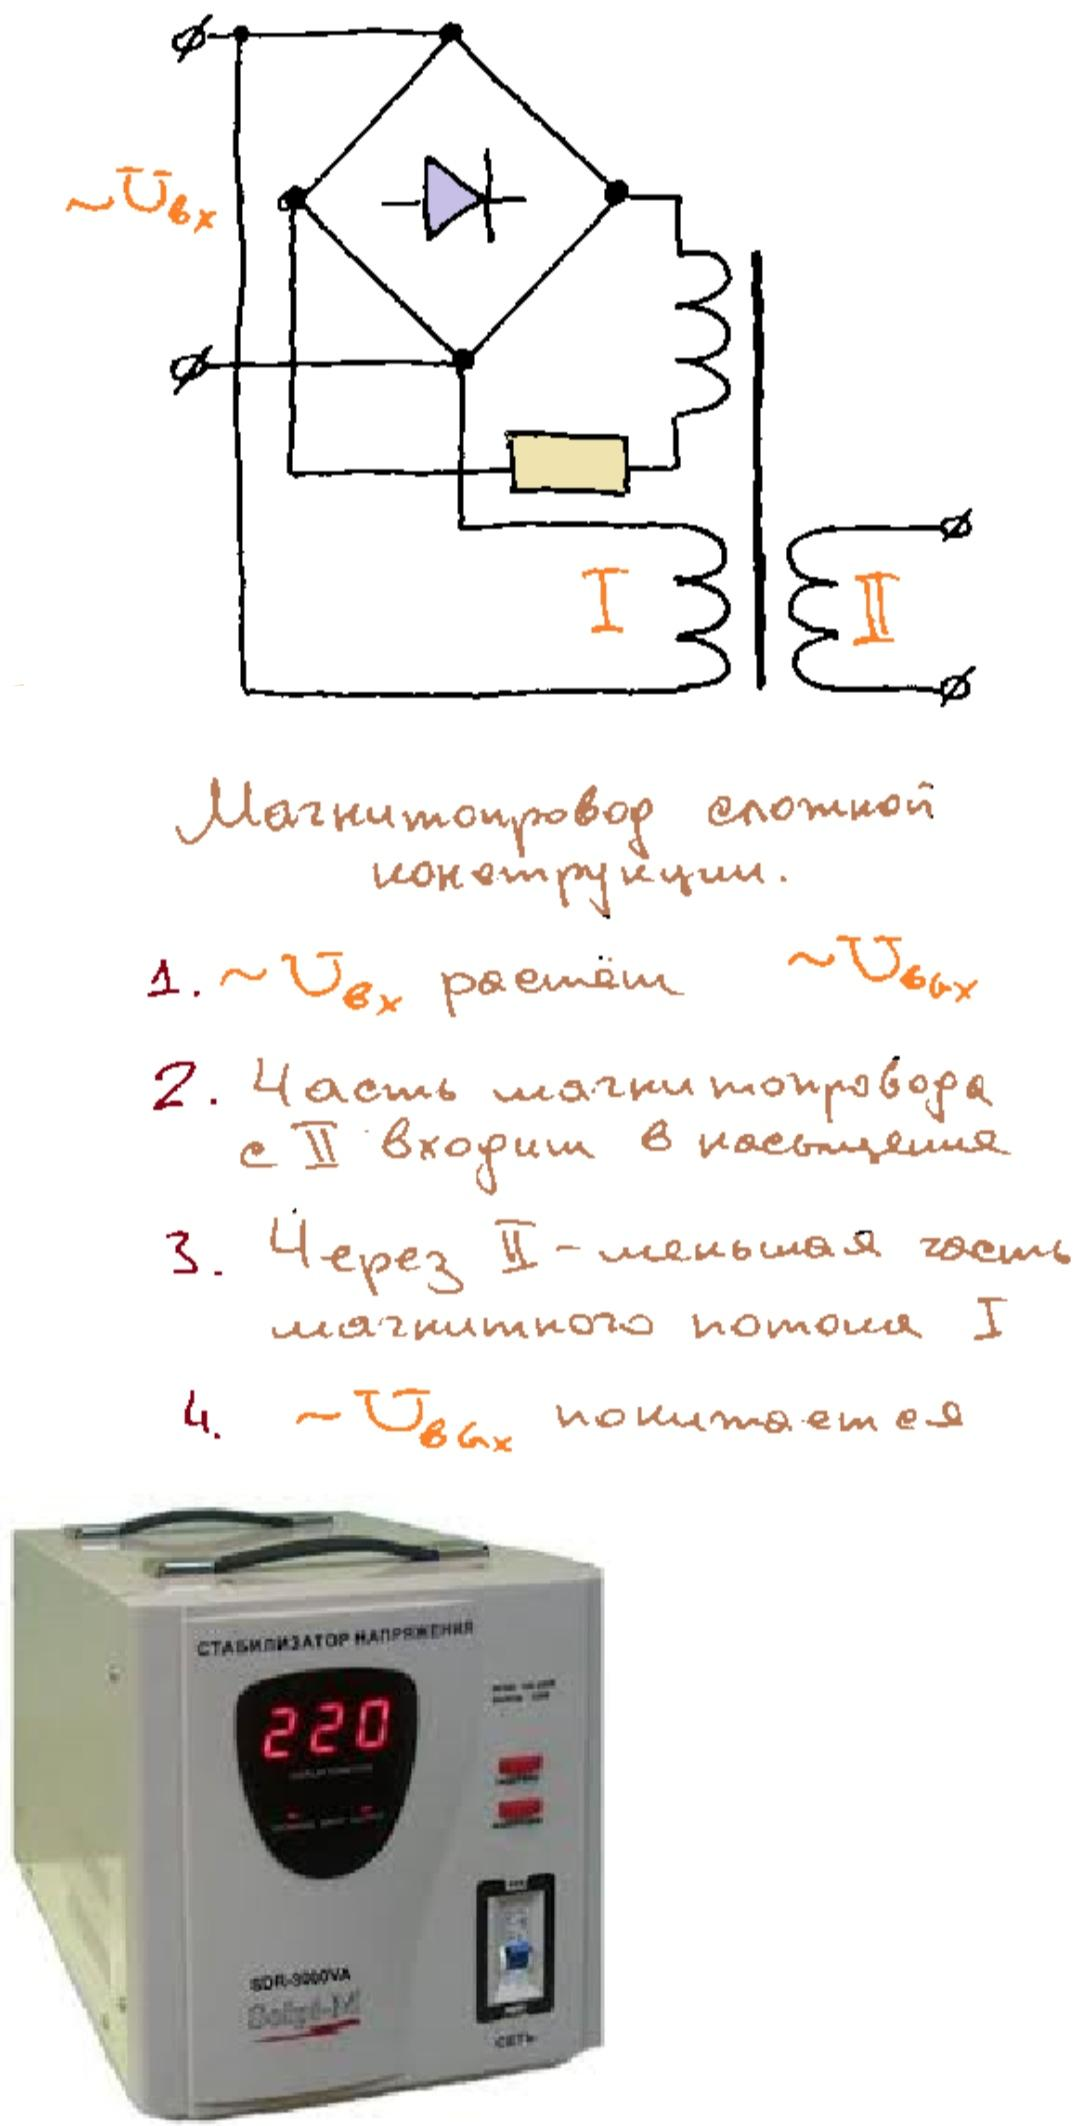 ~Uвх
I
II
Магнитопровод сложной
конструкции.
1. ~Uвх растёт ~Uвых
2. Часть магнитопровода
с II входит в насыщения
3. Через II - меньшая часть
магнитного потока I
4. ~Uвых понижается
СТАБИЛИЗАТОР НАПРЯЖЕНИЯ
220
SDR-3000VA
СЕТЬ